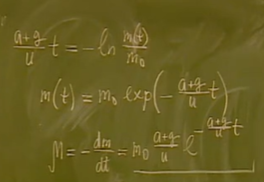 \frac{a+g}{u} t = -\ln \frac{m(t)}{m_0}
m(t) = m_0 exp(-\frac{a+g}{u} t)
M = -\frac{dm}{dt} = m_0 \frac{a+g}{u} e^{-\frac{a+g}{u} t}